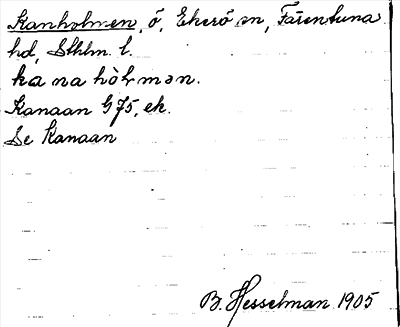 Kanholmen, ö, Ekerö sn, Färentuna
hd, Sthlm. l.
ka na hòlmən.
Kanaan G 75, ek.
Se Kanaan
B. Hesselman 1905